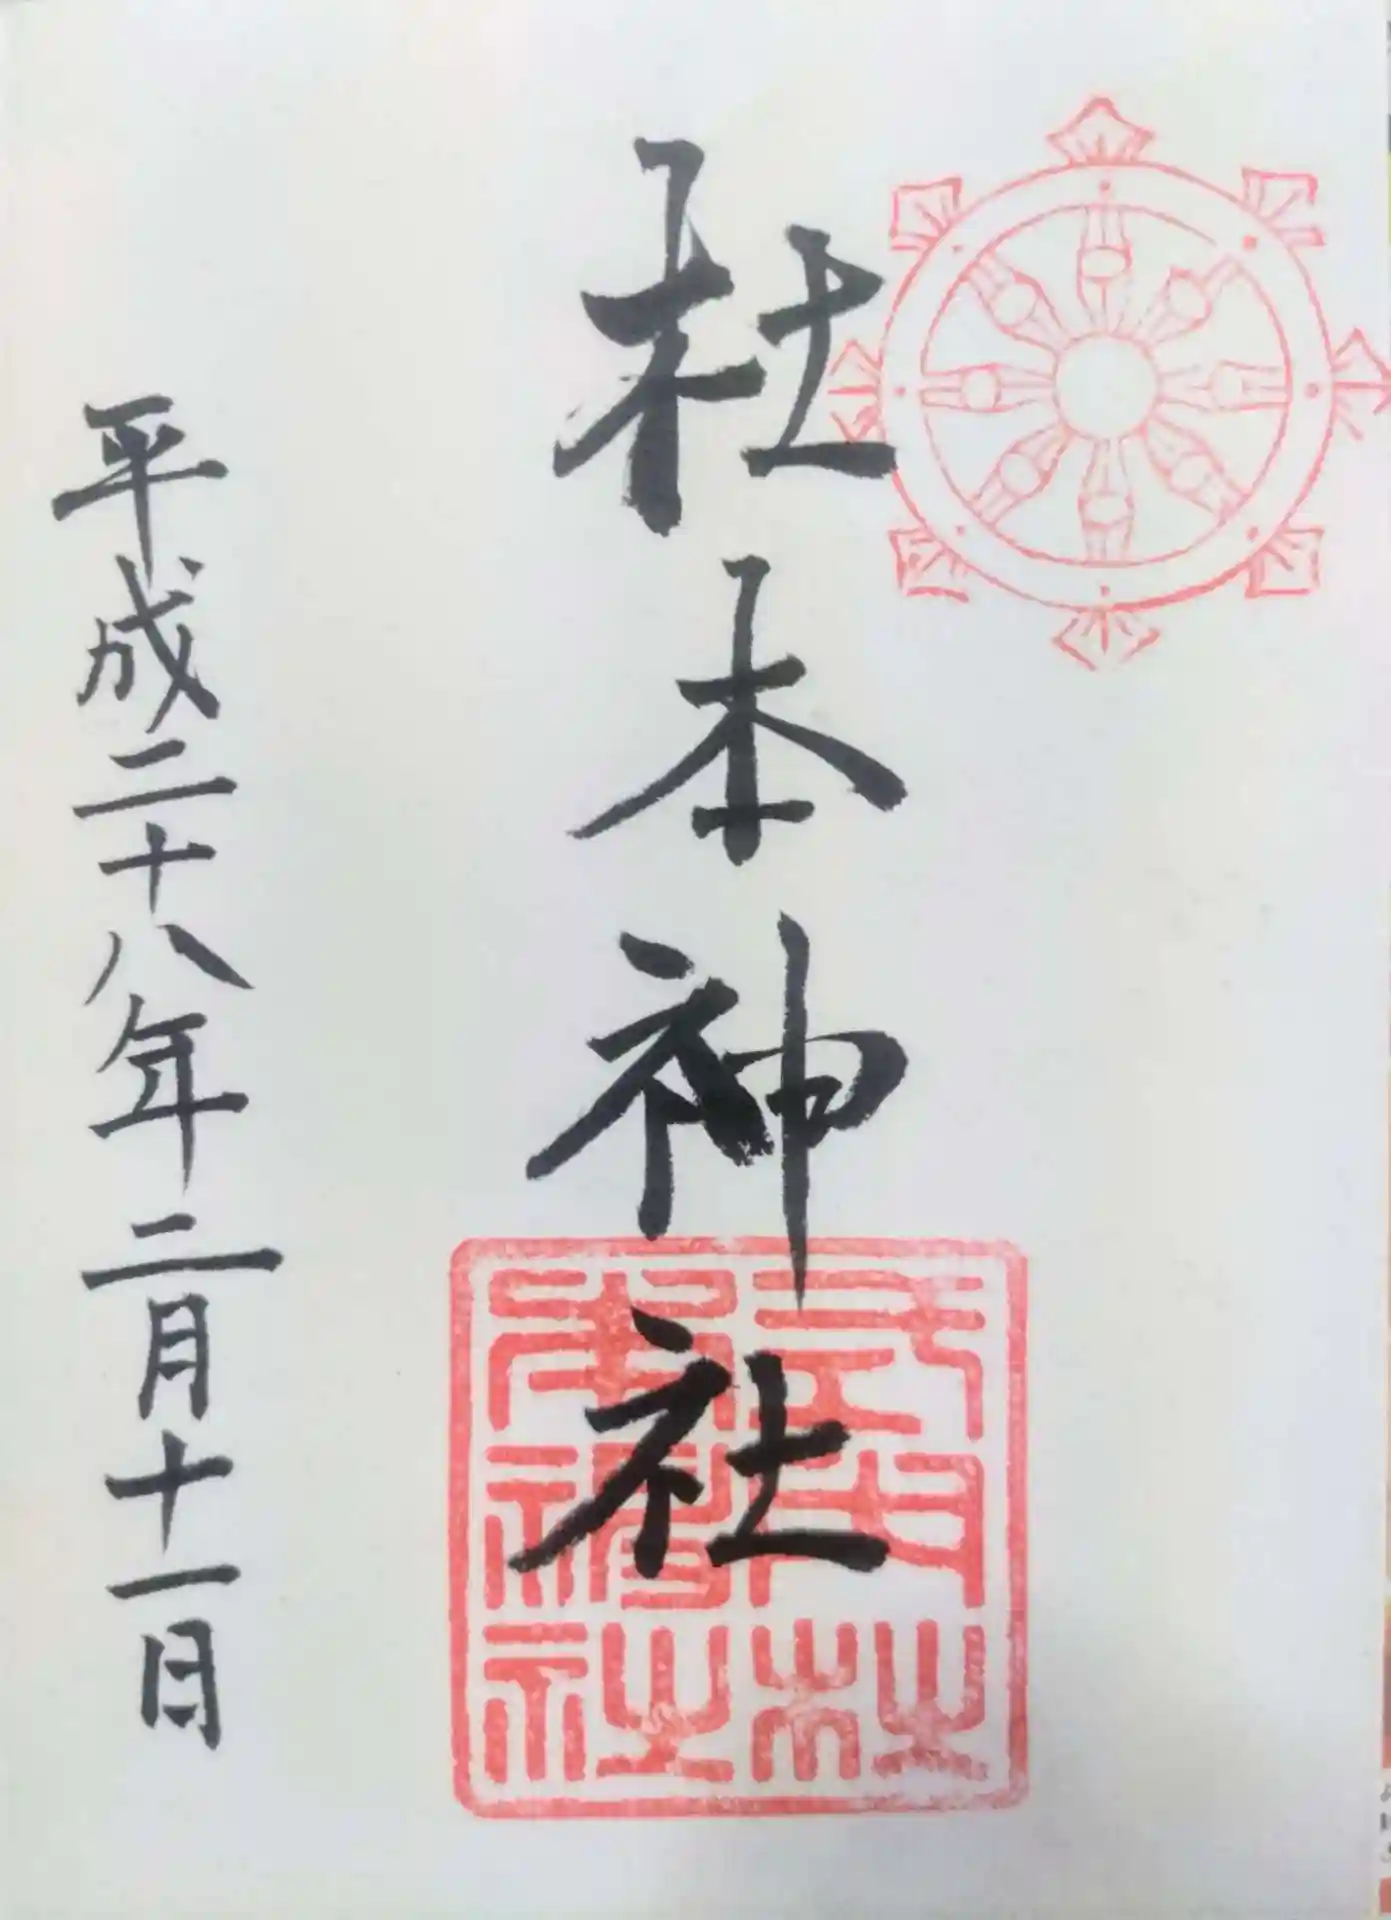 杜本神社
式内杜本神社
平成二十八年二月十一日